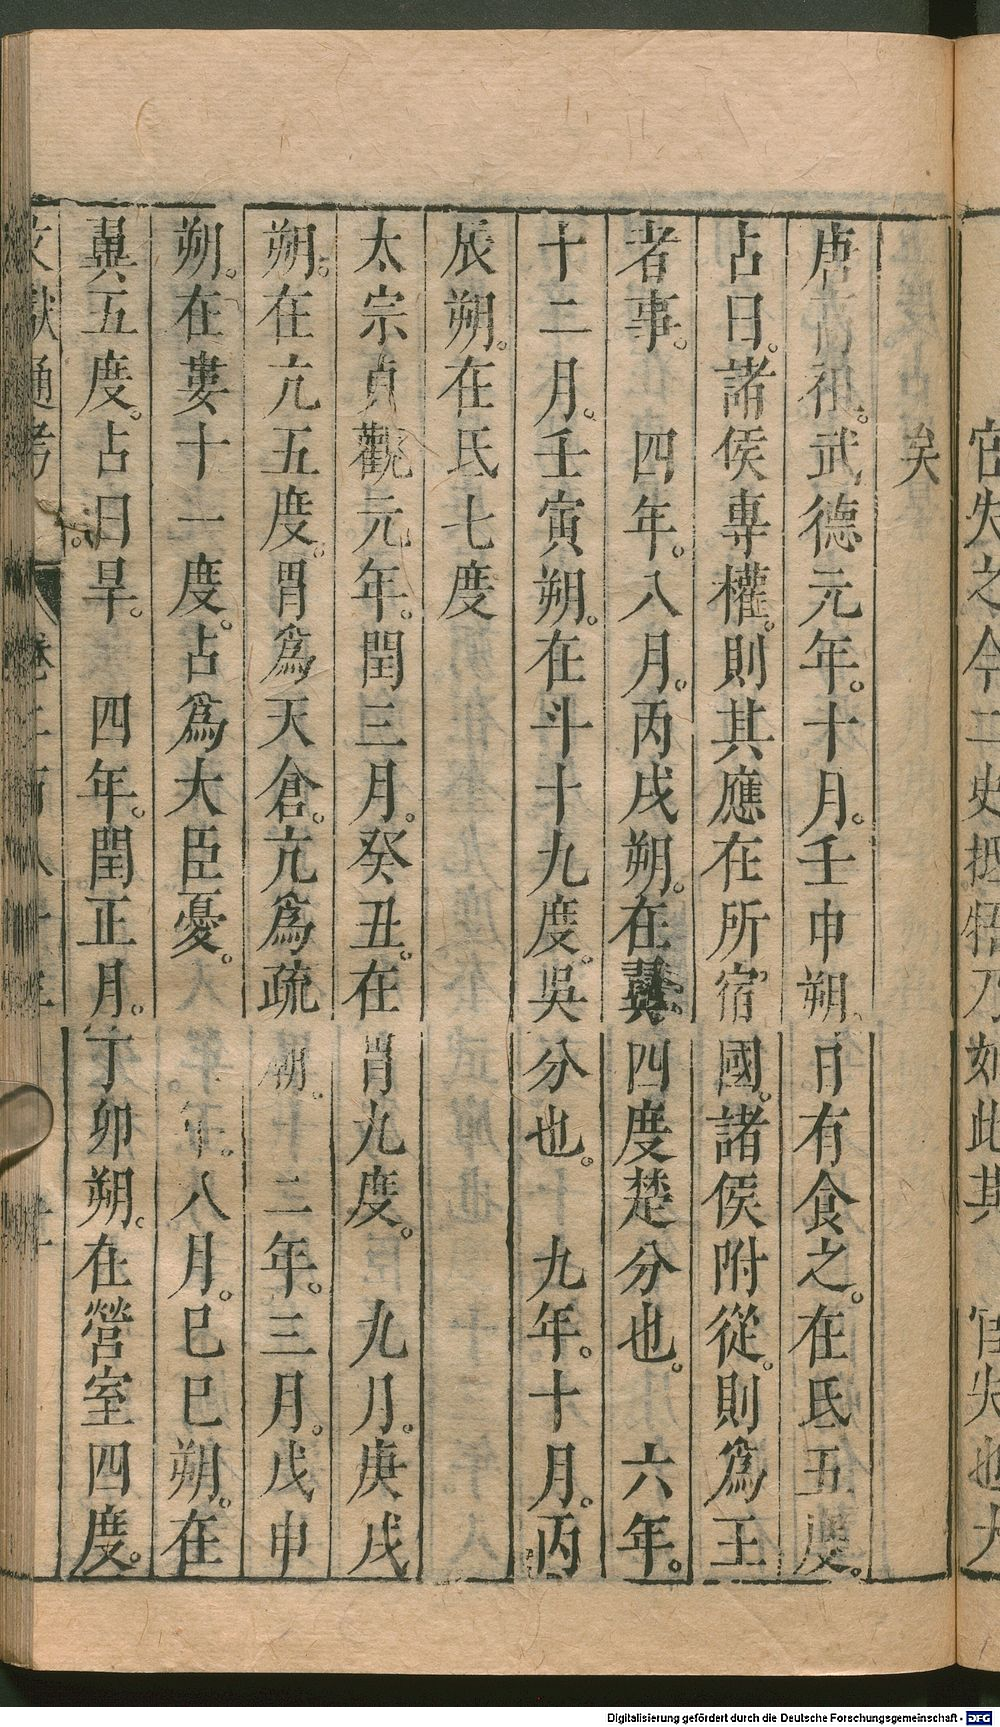 矣
唐高祖。武德元年。十月。壬申朔。日有食之。在氐五度。
占曰。諸侯專權。則其應在所宿國。諸侯附從。則爲王
者事。　四年。八月。丙戌朔。在翼四度楚分也。　六年。
十二月。壬寅朔。在斗十九度。吳分也。　九年。十月。丙
辰朔。在氐七度
太宗貞觀元年。閏三月。癸丑。在胃九度。　九月。庚戌
朔。在亢五度。胃爲天倉。亢爲疏朝。　二年。三月。戊申
朔。在婁十一度。占爲大臣憂。　年。八月。巳巳朔。在
翼五度。占曰旱。　四年。閏正月。丁卯朔。在營室四度。
文獻通考 卷二百八十
官失之今二史抵牾乃如此其官失也大
Digitalisierung gefördert durch die Deutsche Forschungsgemeinschaft - DFG